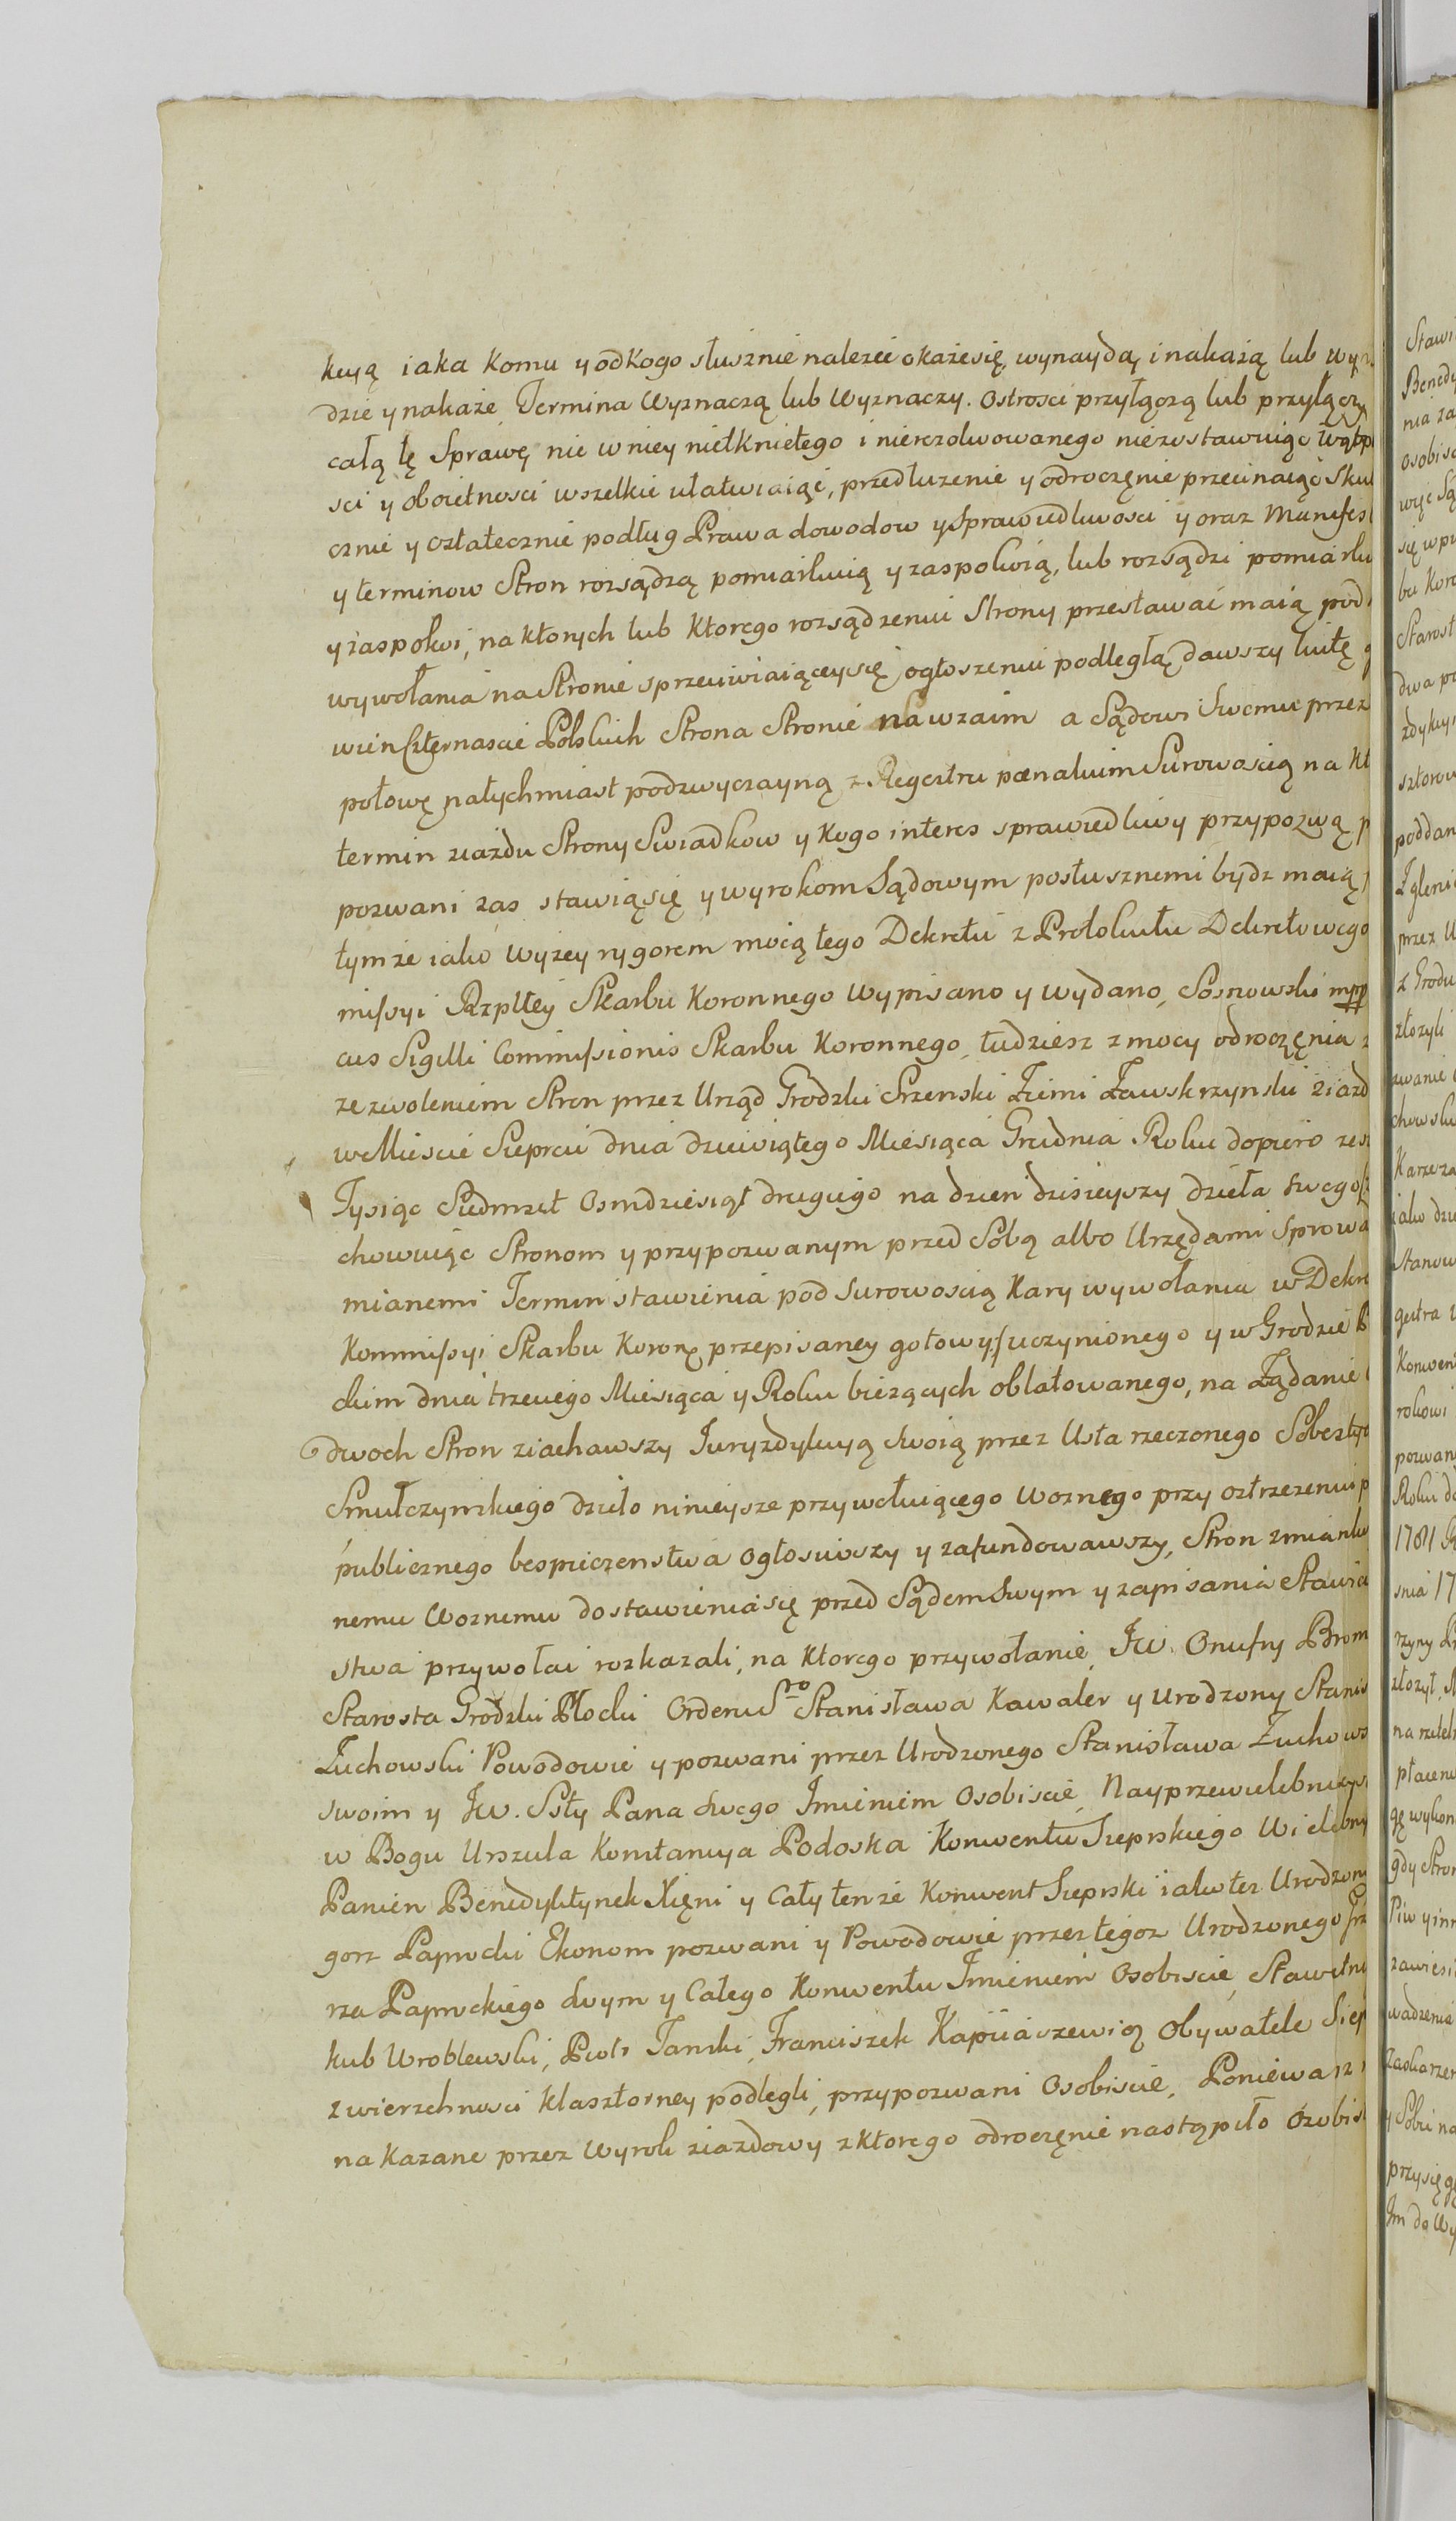 kcyą iaka komu y od kogo słusznie nalezeć okaże się, wynaydą i nakażą lub wy
dzie y nakaże Termina wyznaczą lub wyznaczy. Ostrosci przyłączą lub przyłączy
całą tę Sprawę nic w niey nietkniętego i nierezolwowanego niezostawuiąc Wątp
sci y oboiętnosci wszelkie ułatwiaiąc, przedłuzenie y odroczęnie przecinaiąc Sku
cznie y ostatecznie podług Prawa dowodow y Sprawiedliwosci y oraz Manifest
y terminow Stron rozsądzą pomiarkuią y zaspokoią, lub rozsądzi pomiarku
y zaspokoi, na ktorych lub ktorego rozsądzeniu Strony przestawać maią pod
wywołania na Stronie sprzeciwiaiącey się ogłoszeniu podległą dawszy luitę
wien Czternascie Polskich Strona Stronie nawzaim a Sądowi Swemu przez
połowę natychmiast podzwyczayną z Regestru pœnalium Surowoscią na kt
termin ziazdu Strony Swiadkow y kogo interes sprawiedliwy przypozwą p
pozwani zas stawią się y wyrokom Sądowym posłusznemi bydz maią
tymże iako wyżey rygorem mocą tego Dekretu z Protokułu Dekretowego
missyi Rzpltey Skarbu Koronnego wypisano y wydano, Sosnowski mpp
cus Sigilli Commissionis Skarbu Koronnego, tudziesz z mocy odroczęnia
zezwoleniem Stron przez Urząd Grodzki Srzenski Ziemi Zawskrzynskii ziazd
w Miescie Sieprcu dnia dziewiątego Miesiąca Grudnia Roku dopiero zesz
Tysiąc Siedmset Osmdziesiąt drugiego na dzien dzisieyszy dzieła swego
chowuiąc Stronom y przypozwanym przed Sobą albo Urzędami Sprowa
mianemi Termin stawienia pod surowoscią kary wywołania w Dekre
Kommissyi Skarbu Koron przepisaney gotowy uczynionego y w Grodzie
ckim dnia trzeciego Miesiąca y Roku bieżących oblatowanego, na Ządanie
dwoch Stron ziachawszy Juryzdykcyą swoią przez Usta rzeczonego Sobesty
Smułczynskiego dzieło ninieysze przywołuiącego Woznego przy ostrzezeniu p
publicznego bespieczenstwa ogłosiwszy y zafundowawszy, Stron zmianko
nemu Woznemu do stawienia się przed Sądem swym y zapisania Stawie
stwa przywołać rozkazali, na ktorego przywołanie, JW. Onufry Brom
Starosta Grodzki Płocki Orderu Sgo Stanisława Kawaler y Urodzony Stanis
Zuchowski Powodowie y pozwani przez Urodzonego Stanisława Zuchows
swoim y JW. Ssty Pana swego Imieniem Osobiscie, Nayprzewielebnieys
w Bogu Urszula Konstancya Podoska Konwentu Sieprskiego Wielebny
Panien Benedyktynek Xięni y Cały tenże Konwent Sieprski iakotez Urodzony
gorz Paprocki Ekonom pozwani y Powodowie przez tegoz Urodzonego Grz
rza Paprockiego swym y Całego Konwentu Imieniem Osobiscie, Sławetni
kub Wroblewski, Piotr Tanski, Franciszek Kapuaszewicz Obywatele Siep
zwierzchnosci klasztorney podlegli, przypozwani Osobiscie, Poniewasz
nakazane przez Wyrok ziazdowy z ktorego odroczęnie nastąpiło Osobis
Stawi
Benedy
nia za
osobisc
wyc Są
się w pu
bu Koro
Starost
dwa po
zdykcy
sztorow
poddan
Zgleni
przez U
z Grodu
złozyli
zwanie
chowski
Karcza
iako dzi
Stanow
gestra
Konwen
rokowi
pozwan
Roku d
1781
snia 17
rzyny
złozył,
na rztel
płacen
gę wykon
gdy Stron
Piw y inn
zawiesi
wadzenia
Zaskarzen
y Sobie na
przysięg
Im do Wy